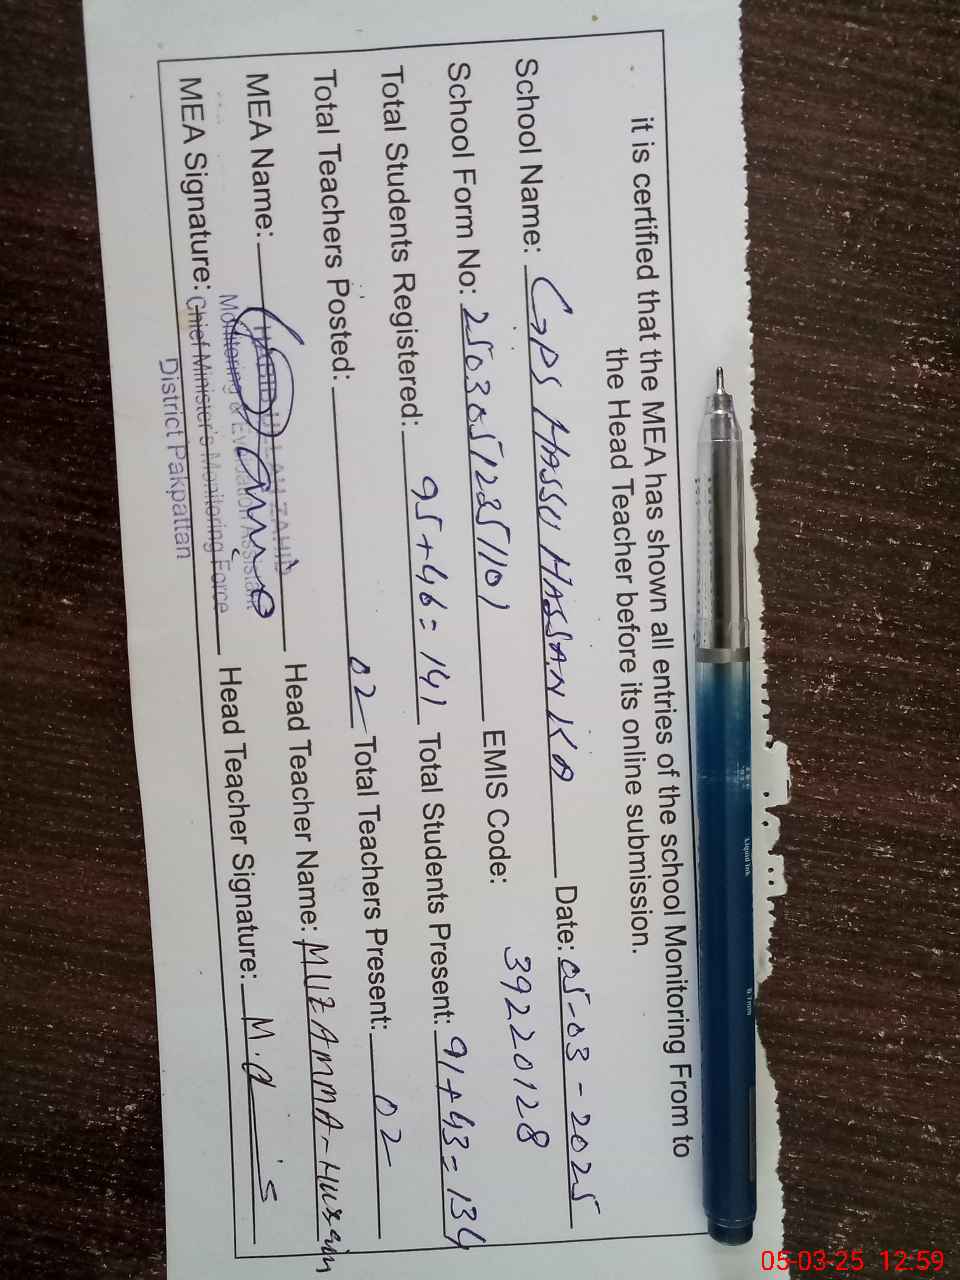 it is certified that the MEA has shown all entries of the school Monitoring From to
the Head Teacher before its online submission.
School Name: GPS HASSU HASSAN KA Date: 05-03-2025
School Form No: 25030512351101 EMIS Code: 39220128
Total Students Registered: 95+46=141 Total Students Present: 91+43=134
Total Teachers Posted: 02 Total Teachers Present: 02
MEA Name: Head Teacher Name: MUZAMMA-Husain
MEA Signature: Head Teacher Signature:
ZAHID
Monitoring & Evaluation Assistant
Chief Minister's Monitoring Force
District Pakpattan
Liquid Ink
0.7mm
05-03-25 12:59